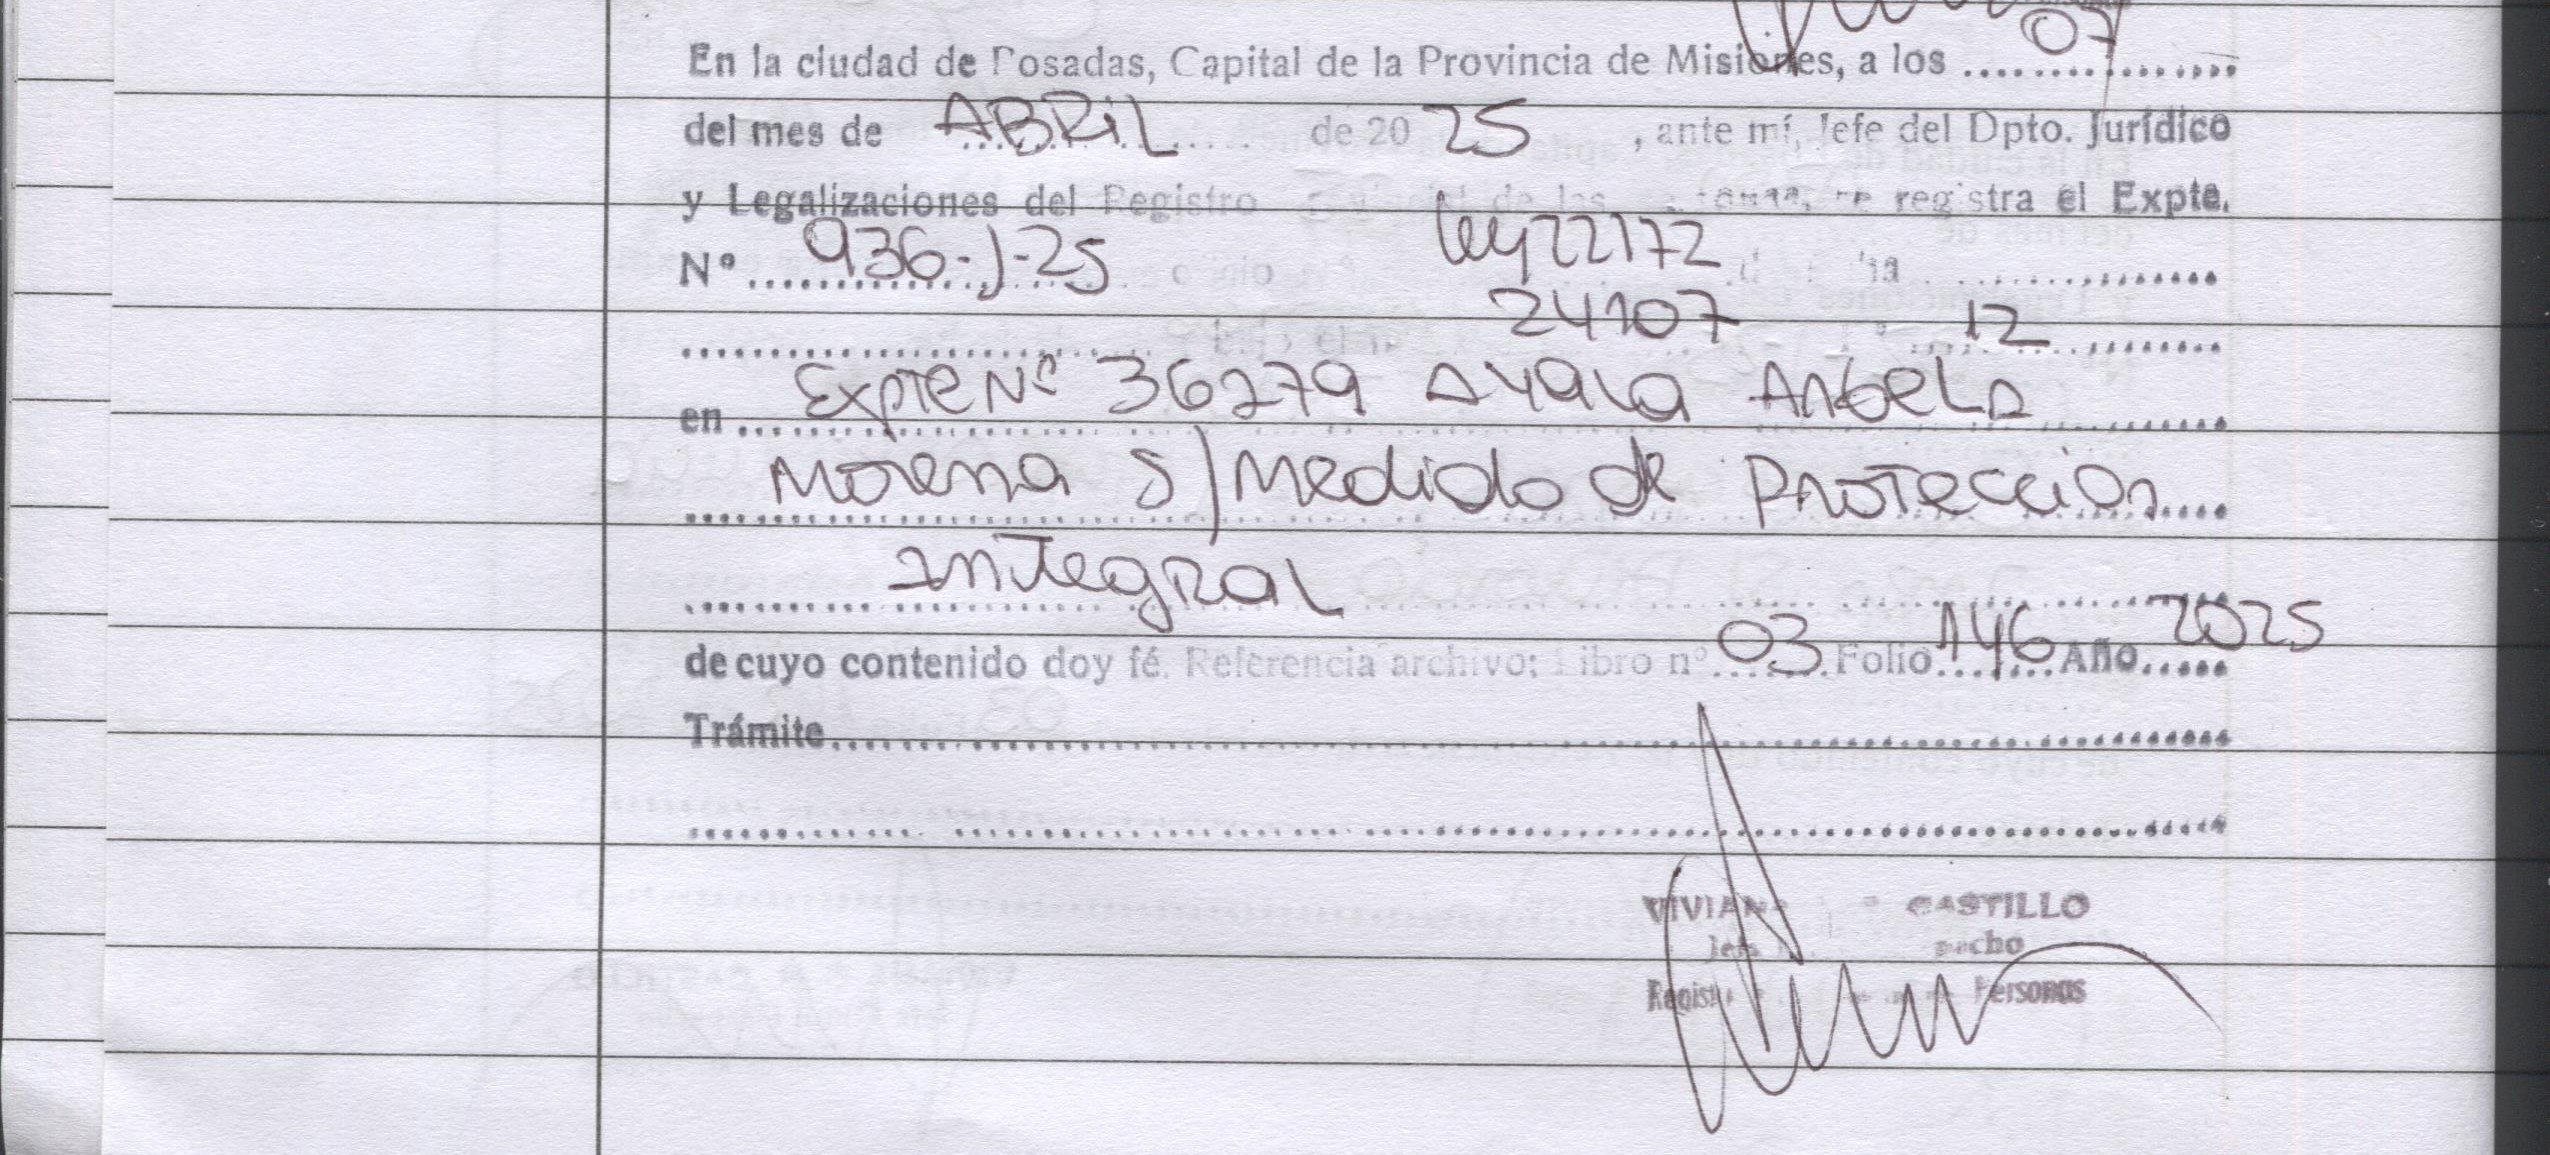 07
En la ciudad de Posadas, Capital de la Provincia de Misiones, a los
del mes de ABRiL de 20 25, ante mí, Jefe del Dpto. Jurídico
y Legalizaciones del Registro de las se registra el Expte.
Nº 936-J-25 Ley 22172
24107 12
en Expte Nº 36279 Ayala Angela
Morena S/ Medida de Proteccion
Integral
de cuyo contenido doy fé. Referencia archivo: Libro nº 03 Folio 146 Año 2025
Trámite
CASTILLO
Jefe
Personas